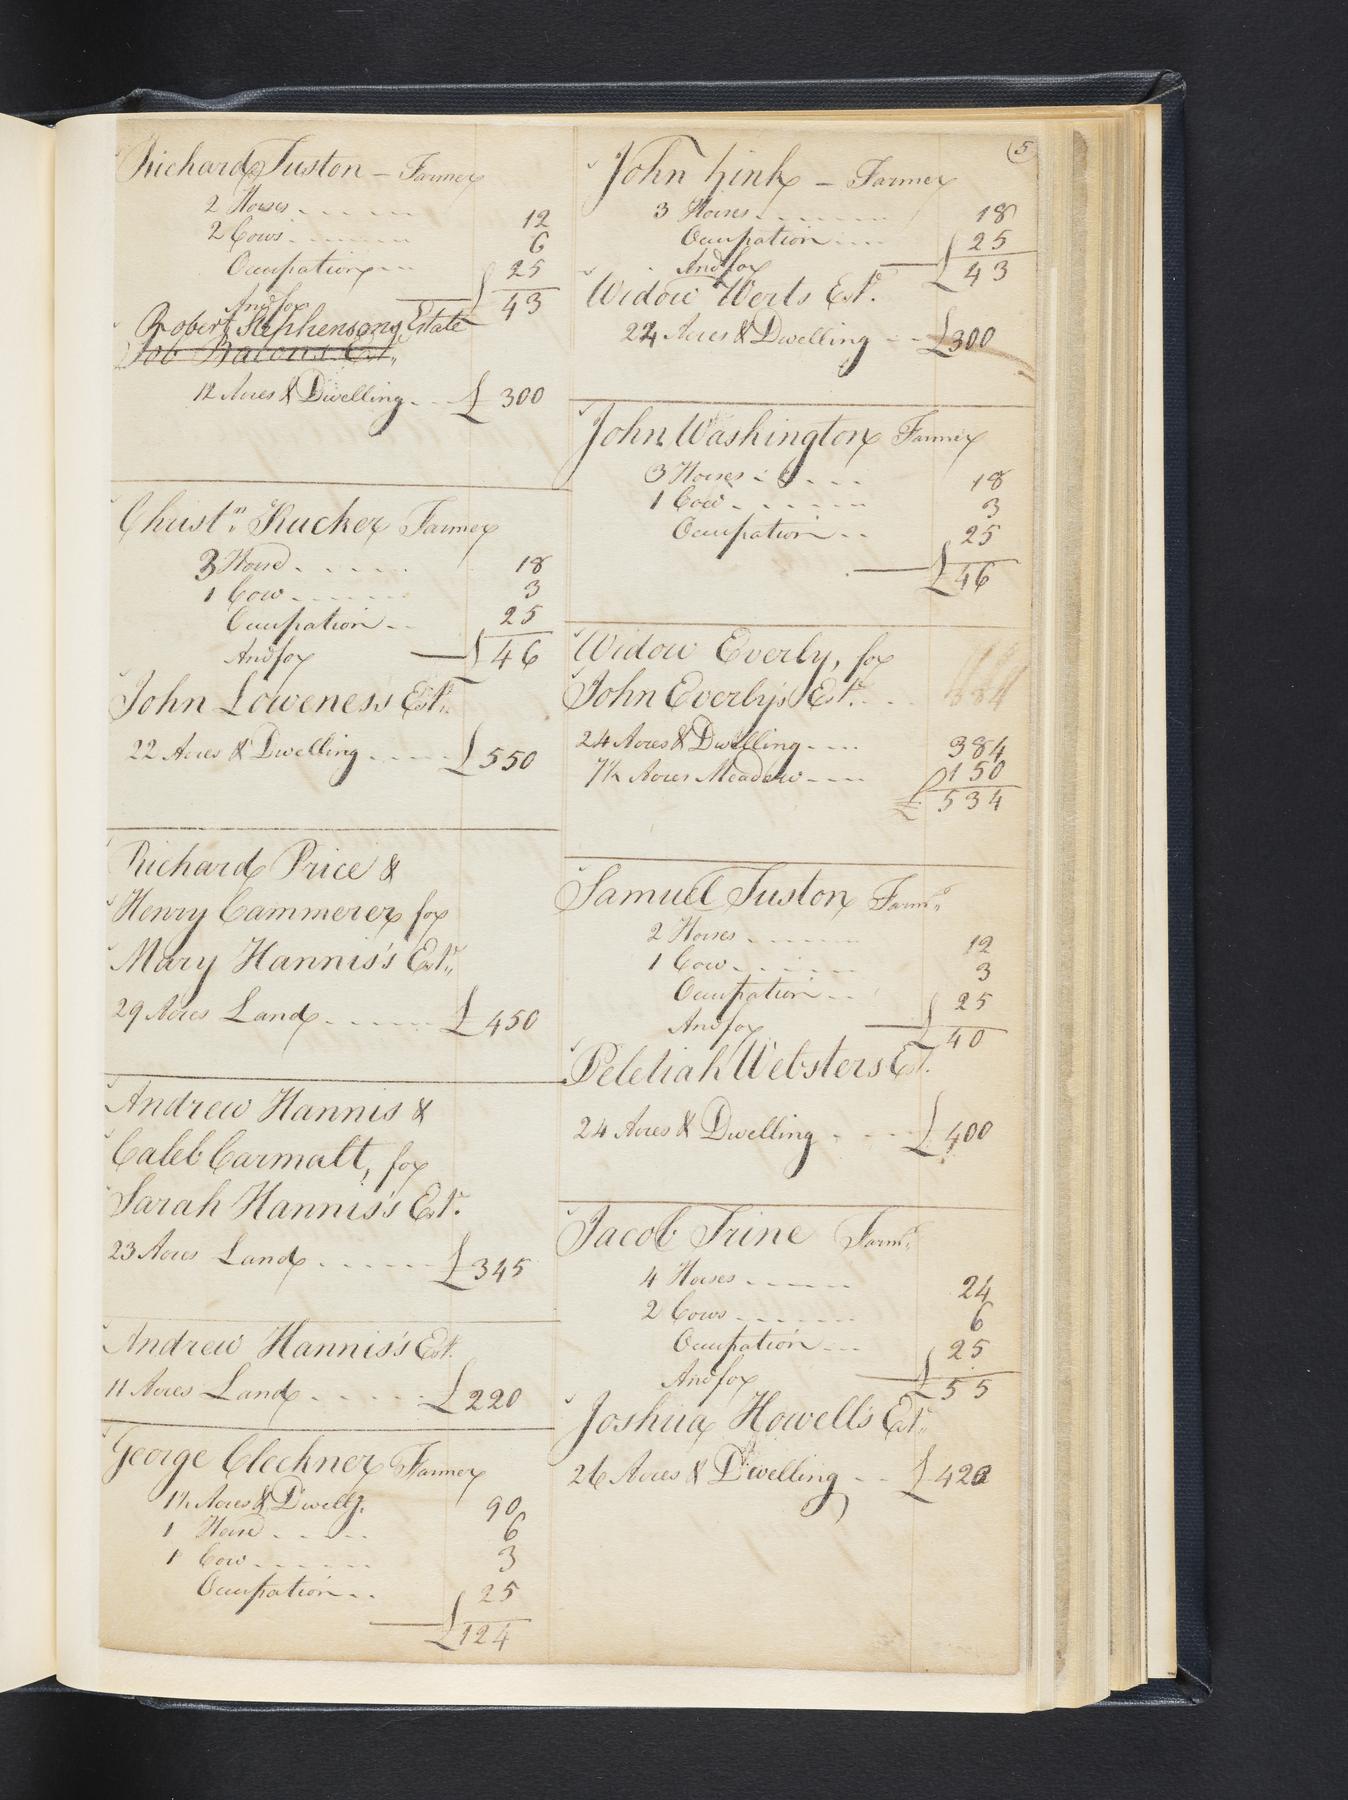 5
Richard Tuston – Farmer
2 Horses 12
2 Cows 6
Occupation 25
And for £ 43
Robert Stephensons Estate
Job Bacons Est.
12 Acres & Dwelling £ 300
Christn. Rucker Farmer
3 Horse 18
1 Cow 3
Occupation 25
And for £ 46
John Lowenes's Est.
22 Acres & Dwelling £ 550
Richard Price &
Henry Cammerer for
Mary Hannis's Est.
29 Acres Land £ 450
Andrew Hannis &
Caleb Carmalt, for
Sarah Hannis's Est.
23 Acres Land £ 345
Andrew Hannis's Est.
11 Acres Land £ 220
George Cleckner Farmer
Acres & Dwellg. 90
1 Horse 6
1 Cow 3
Occupation 25
£ 124
John Link – Farmer
3 Horses 18
Occupation 25
And for £ 43
Widow Werts Est.
22 Acres & Dwelling £ 300
John Washington Farmer
3 Horses 18
1 Cow 3
Occupation 25
£ 46
Widow Everly, for
John Everly's Est.
24 Acres & Dwelling 384
7½ Acres Meadow 150
£ 534
Samuel Tuston Farmr.
2 Horses 12
1 Cow 3
Occupation 25
And for £ 40
Peletiah Websters Est.
24 Acres & Dwelling £ 400
Jacob Trine Farmr.
4 Horses 24
2 Cows 6
Occupation 25
And for £ 55
Joshua Howell's Est.
26 Acres & Dwelling £